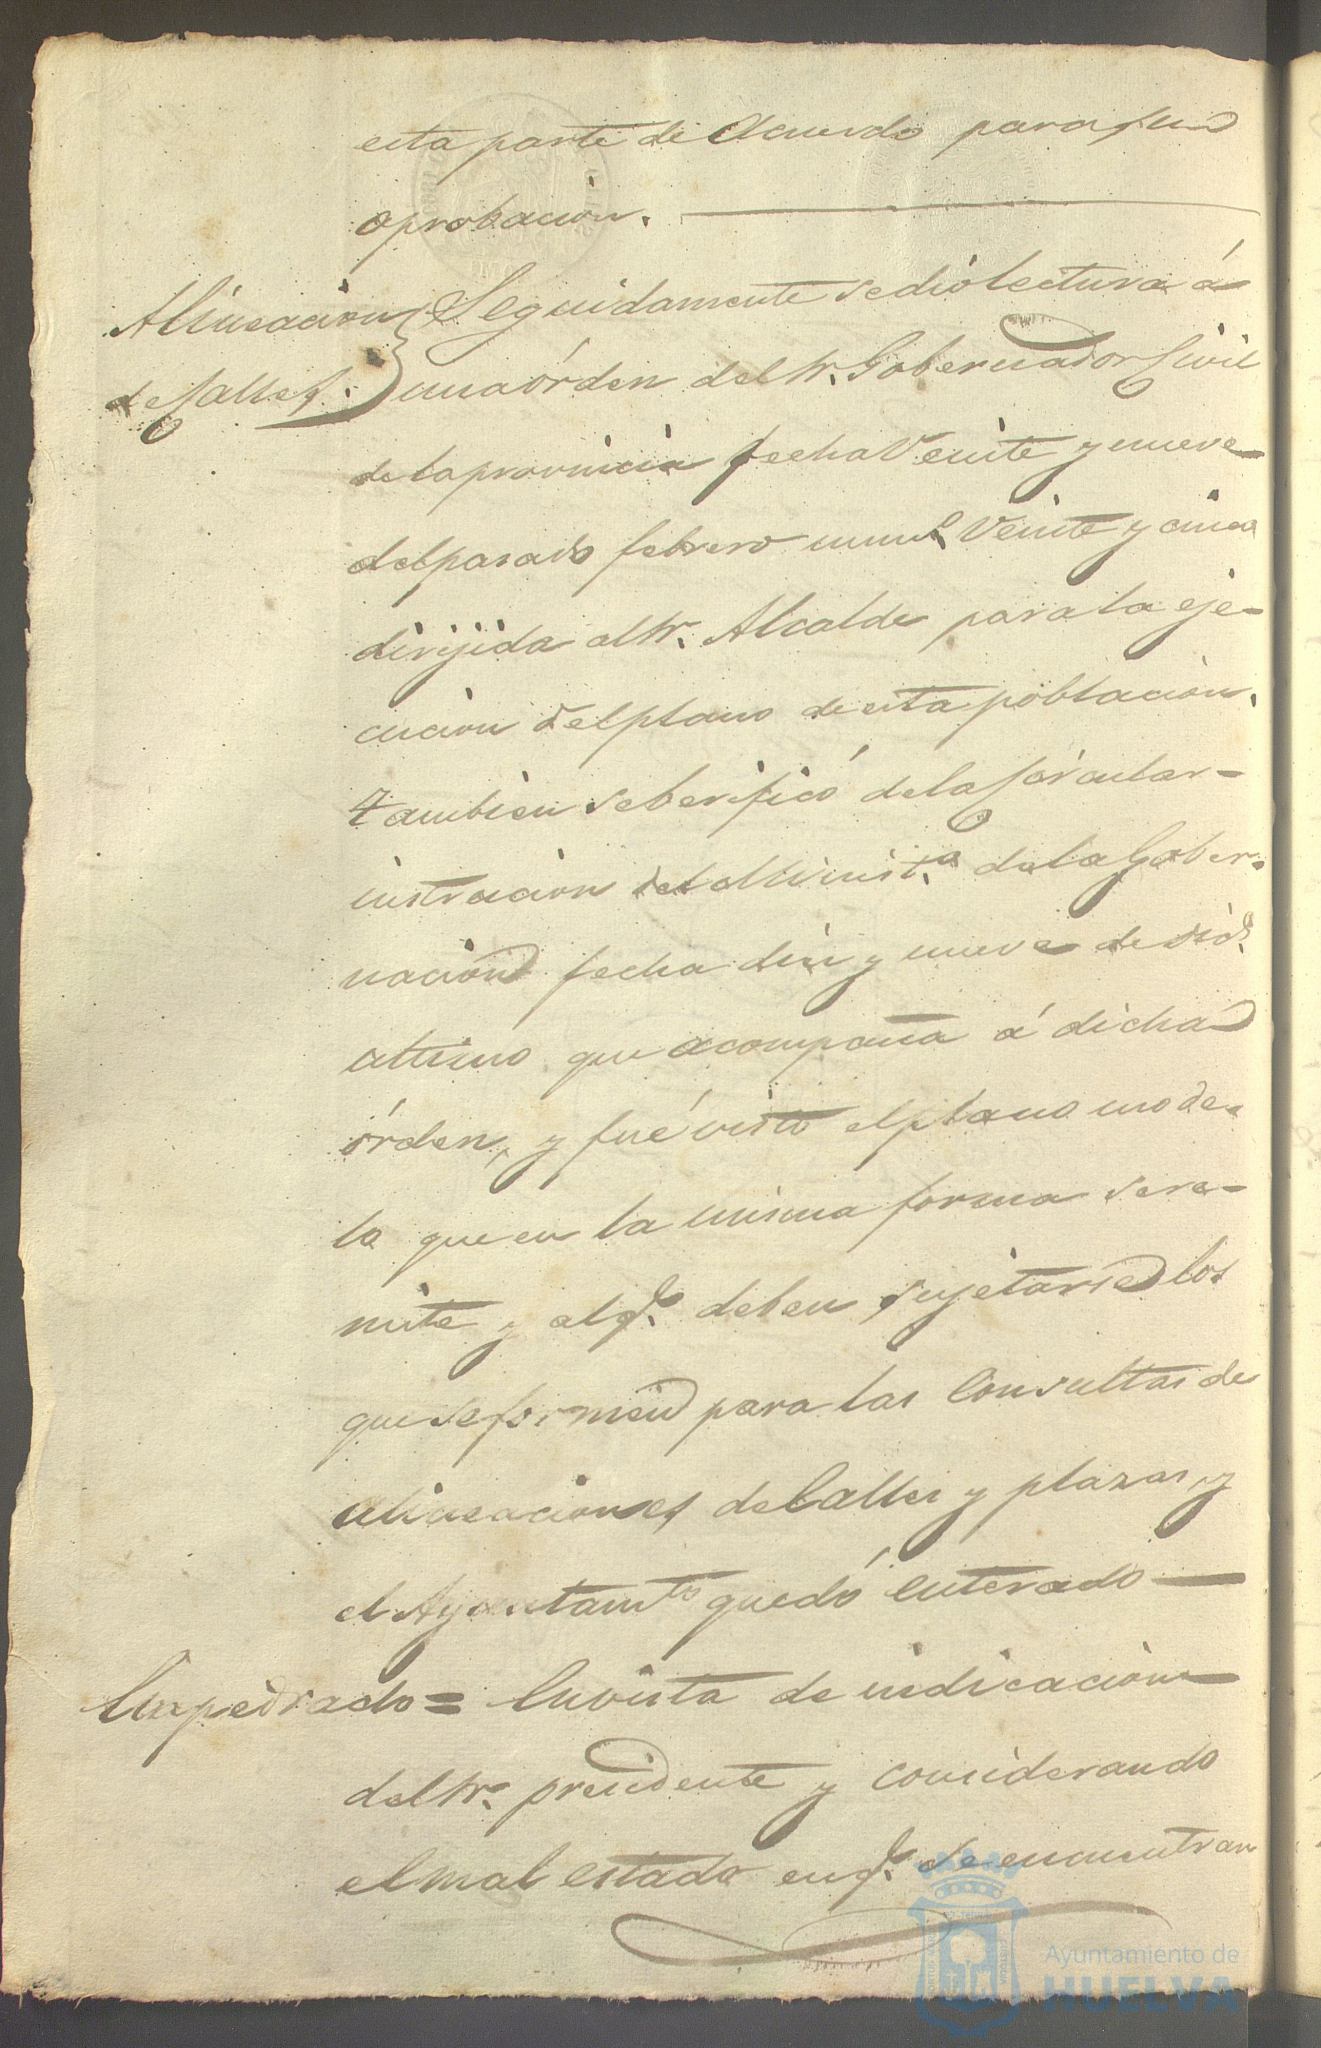 esta parte de Acuerdo para su
aprobación.
Alineacion
de Calles.
Seguidamente se dió lectura á
una órden del Sr. Gobernador Civil
de la provincia fecha Veinte y nueve
del pasado febrero num.º Veinte y cinco
dirijida al Sr. Alcalde para la eje-
cucion del plano de esta poblacion.
tambien se berificó de la Circular-
instruccion del Minist.º de la Gober-
nacion fecha diez y nueve de
ultimo que acompaña á dicha
órden, y fué visto el plano mode-
lo que en la misma forma se re-
mite y al q.e deben sujetarse los
que se formen para las Consultas de
alineaciones de Calles y plazas, y
el Ayuntam.to quedó enterado
Empedrado = En vista de indicacion
del Sr. presidente y considerando
el mal estado en q.e se encuentran
Ayuntamiento de
HUELVA